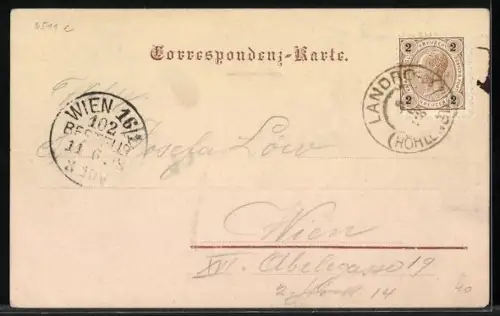 6599 c
Correspondenz-Karte.
2 2
2 2
LANDRO
(HÖHL
WIEN 16/1
102
BESTELLT
11 6
8
Josefa Löw
Wien
XVI. Abelegasse 19
2 14
40